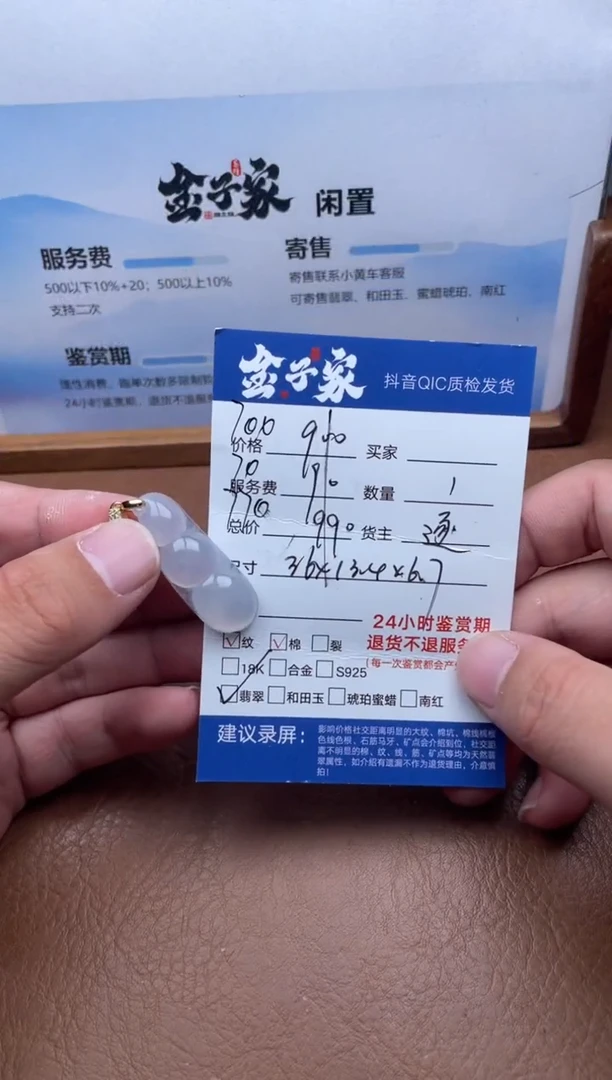 金子家 闲置
服务费
500以下10%+20；500以上10%
支持二次
寄售
寄售联系小黄车客服
可寄售翡翠、和田玉、蜜蜡琥珀、南红
鉴赏期
24小时鉴赏期，退货不退服
金子家 抖音QIC质检发货
700
价格 900 买家
70
服务费 90 数量 1
770
总价 990 货主 逐
寸 36×13.4×6.7
24小时鉴赏期
退货不退服务
(每一次鉴赏都会产
纹 棉 裂
18K 合金 S925
翡翠 和田玉 琥珀蜜蜡 南红
建议录屏：
影响价格社交距离明显的大纹、棉坑、棉线棉根
色线色根，石筋马牙，矿点会介绍到位，社交距
离不明显的棉、纹、线、筋、矿点等均为天然翡
翠属性，如介绍有疏漏不作为退货理由，介意慎
拍！